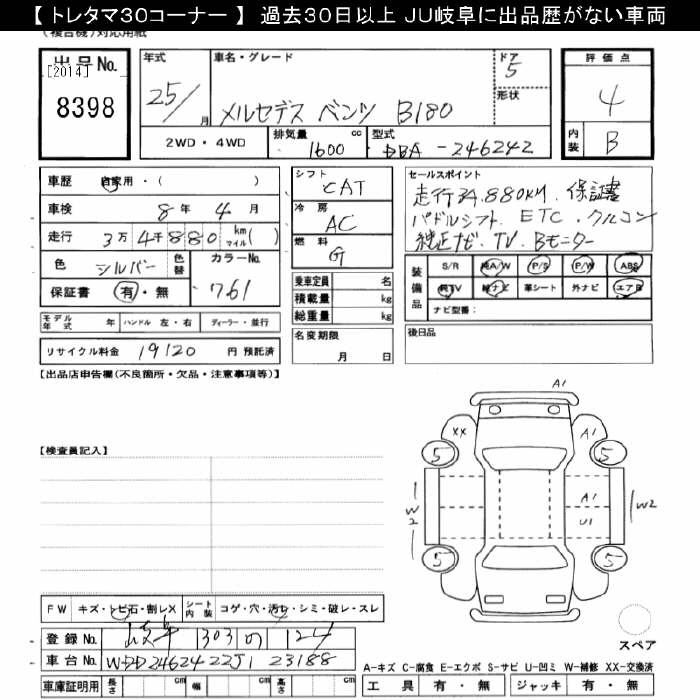 【 トレタマ30コーナー 】 過去30日以上 JU岐阜に出品歴がない車両
(複合機)対応用紙
出品No.
[2014]
8398
年式
25/
月
車名・グレード
メルセデス ベンツ B180
ドア
5
形状
評価点
4
内装
B
2WD・4WD
排気量
1600
cc
型式
DBA-246242
車歴
自家用・( )
車検
8年4月
走行
3万4千880
km マイル( )
色
シルバー
色替
カラーNo.
761
保証書
有・無
シフト
CAT
冷房
AC
燃料
G
セールスポイント
走行34,880KM. 保証書
パドルシフト. ETC. クルコン
純正ナビ. TV. Bモニター
装備品
S/R
純A/W
P/S
P/W
ABS
純TV
純ナビ
革シート
外ナビ
エアB
ナビ型番:
乗車定員
名
積載量
kg
総重量
kg
モデル年式
年
ハンドル
左・右
ディーラー・並行
リサイクル料金
19120
円 預託済
名変期限
月 日
後日品
【出品店申告欄(不良箇所・欠品・注意事項等)】
【検査員記入】
A1
XX
A1
5
5
W2
A1
U1
W2
5
5
スペア
FW
キズ・トビ石・割レX
シート内装
コゲ・穴・汚レ・シミ・破レ・スレ
登録No.
岐阜 303 の 124
車台No.
WDD2462422J123188
車庫証明用
長さ
cm
幅
cm
高さ
cm
A-キズ C-腐食 E-エクボ S-サビ U-凹ミ W-補修 XX-交換済
工具
有・無
ジャッキ
有・無